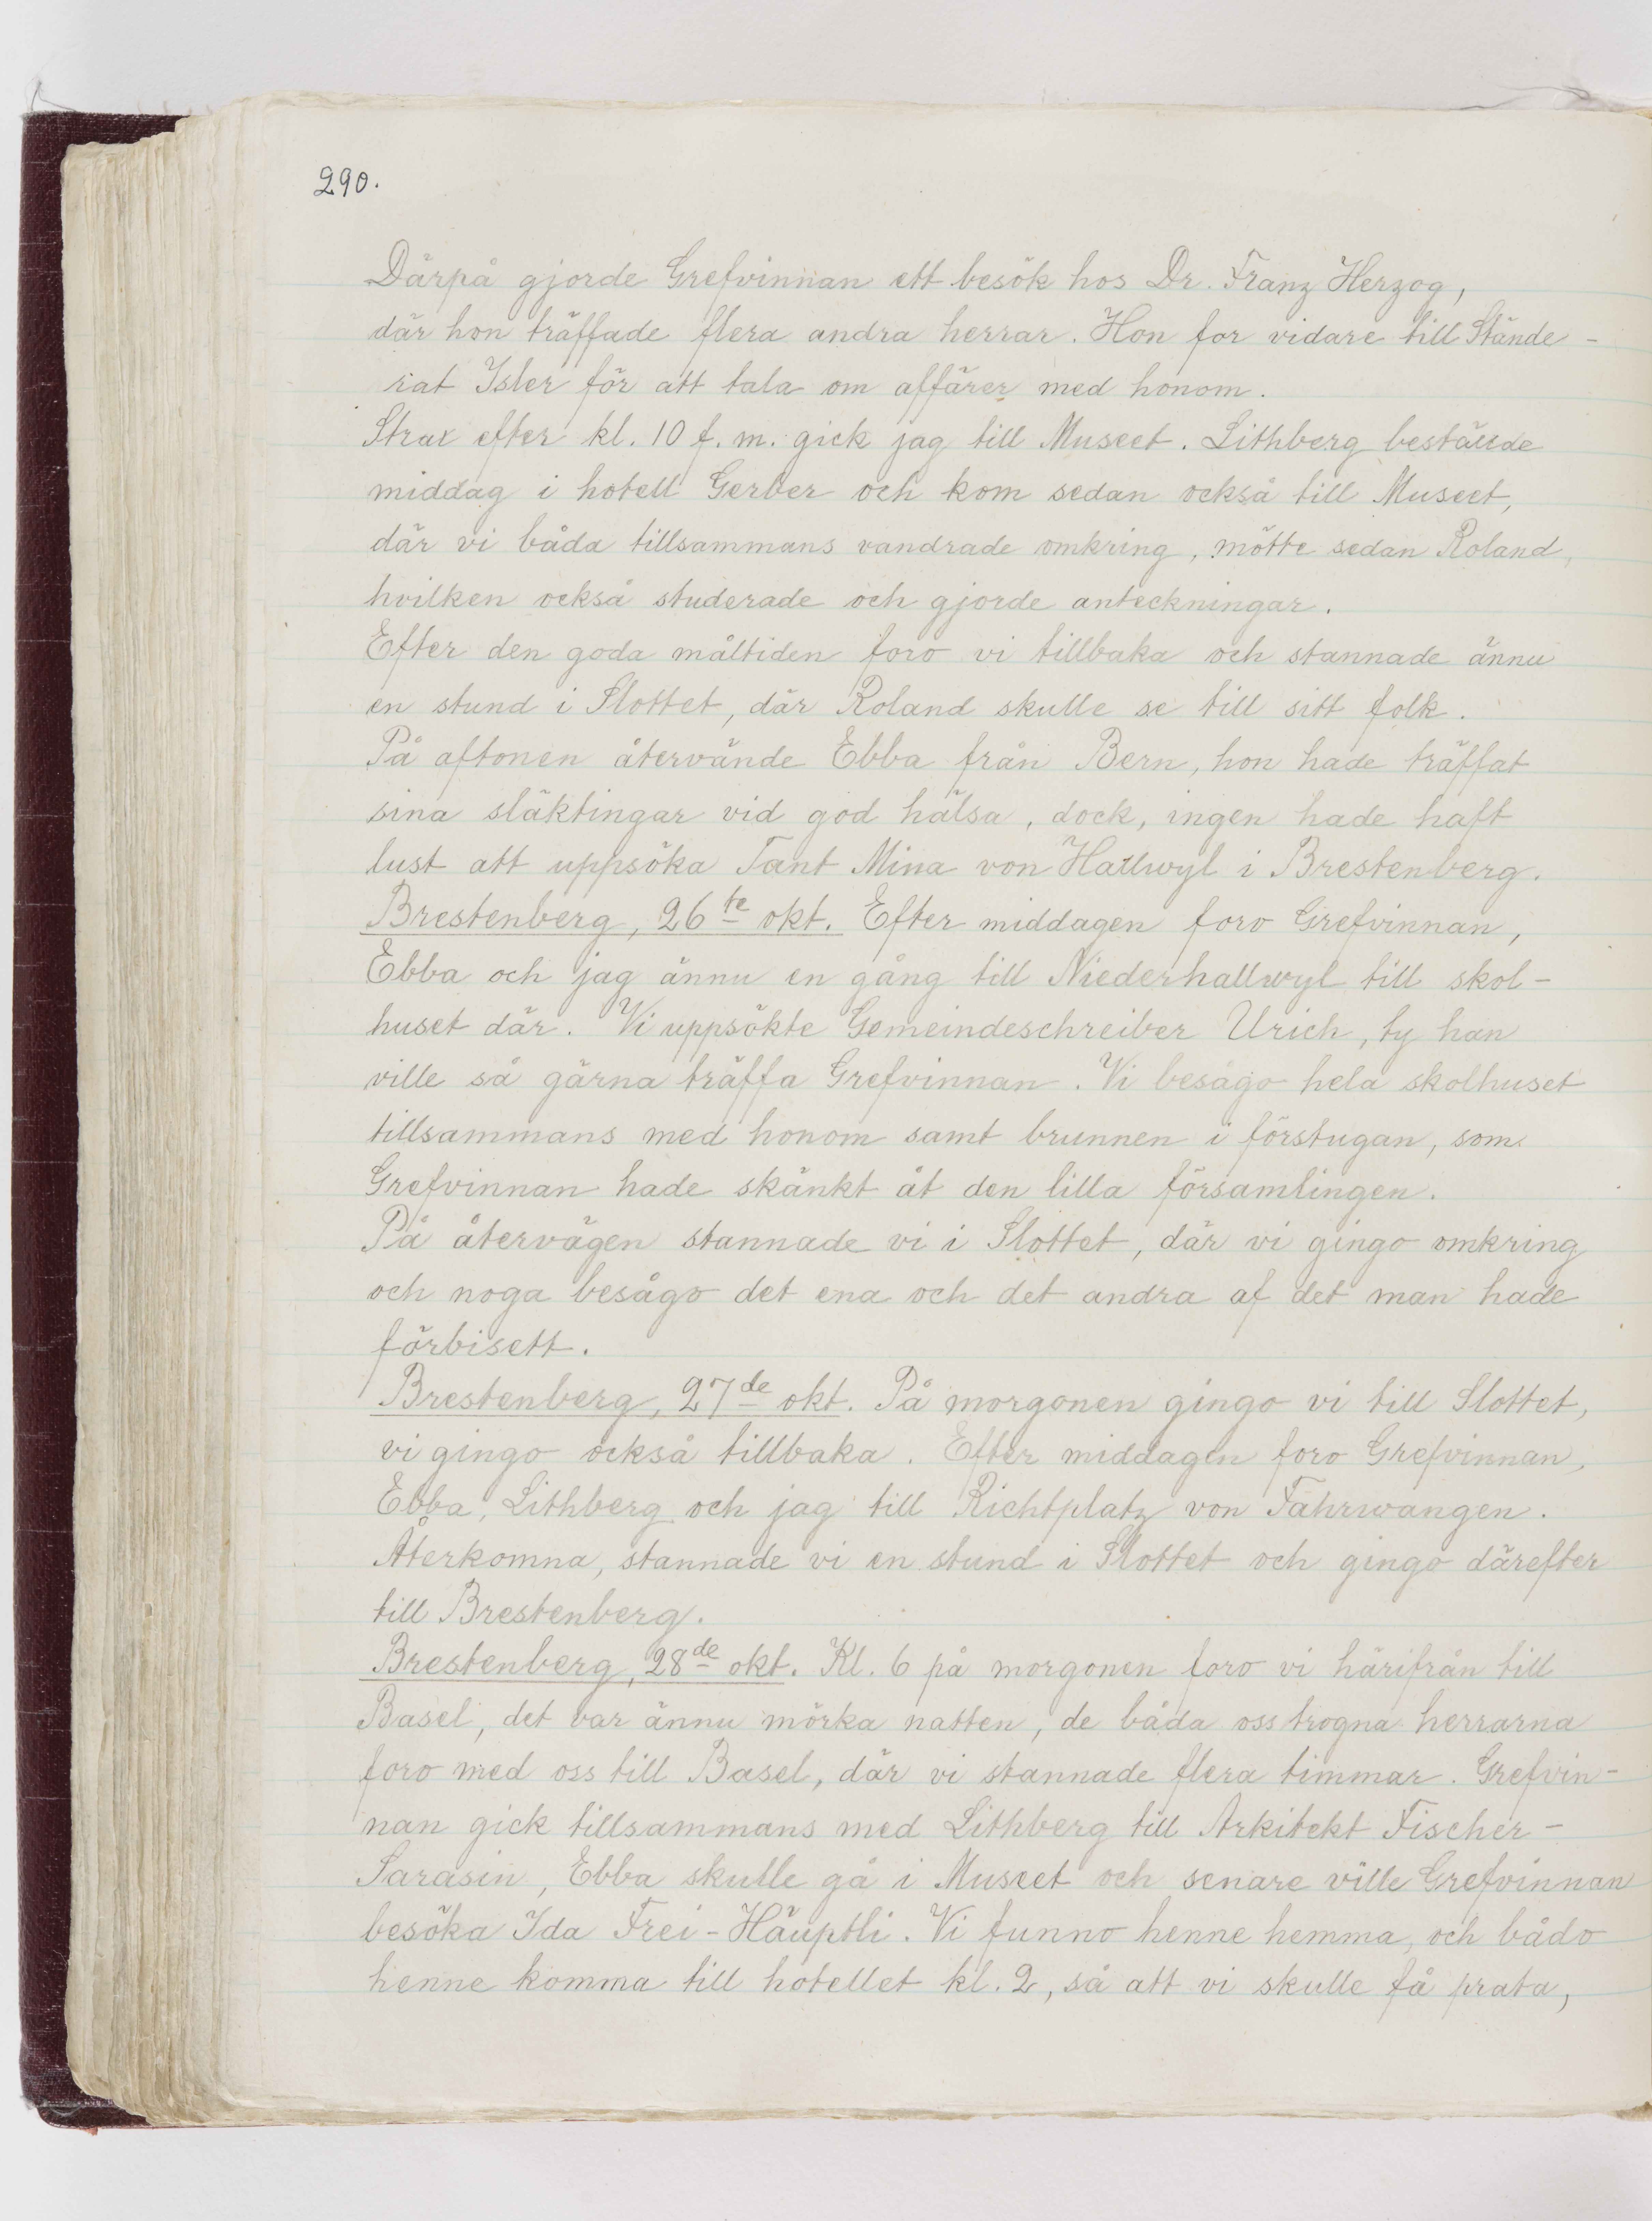 290.
Därpå gjorde Grefvinnan ett besök hos Dr. Franz Herzog,
där hon träffade flera andra herrar. Hon for vidare till Stände-
rat Isler för att tala om affärer med honom.
Strax efter kl. 10 f. m. gick jag till Museet. Lithberg beställde
middag i hotell Gerber och kom sedan också till Museet,
där vi båda tillsammans vandrade omkring, mötte sedan Roland,
hvilken också studerade och gjorde anteckningar.
Efter den goda måltiden foro vi tillbaka och stannade ännu
en stund i Slottet, där Roland skulle se till sitt folk.
På aftonen återvände Ebba från Bern, hon hade träffat
sina släktingar vid god hälsa, dock, ingen hade haft
lust att uppsöka Tant Mina von Hallwyl i Brestenberg.
Brestenberg, 26te okt. Efter middagen foro Grefvinnan,
Ebba och jag ännu en gång till Niederhallwyl till skol-
huset där. Vi uppsökte Gemeindeschreiber Urich, ty han
ville så gärna träffa Grefvinnan. Vi besågo hela skolhuset
tillsammans med honom samt brunnen i förstugan, som
Grefvinnan hade skänkt åt den lilla församlingen.
På återvägen stannade vi i Slottet, där vi gingo omkring
och noga besågo det ena och det andra af det man hade
förbisett.
Brestenberg, 27de okt. På morgonen gingo vi till Slottet,
vi gingo också tillbaka. Efter middagen foro Grefvinnan,
Ebba, Lithberg och jag till Richtplatz von Fahrwangen.
Återkomna, stannade vi en stund i Slottet och gingo därefter
till Brestenberg.
Brestenberg, 28de okt. Kl. 6 på morgonen foro vi härifrån till
Basel, det var ännu mörka natten, de båda oss trogna herrarna
foro med oss till Basel, där vi stannade flera timmar. Grefvin-
nan gick tillsammans med Lithberg till Arkitekt Fischer-
Sarasin, Ebba skulle gå i Museet och senare ville Grefvinnan
besöka Ida Frei-Häuptli. Vi funno henne hemma, och bådo
henne komma till hotellet kl. 2, så att vi skulle få prata,